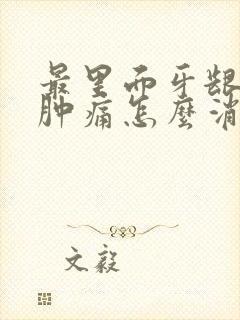 最里面牙龈
肿痛怎麼消
文毅